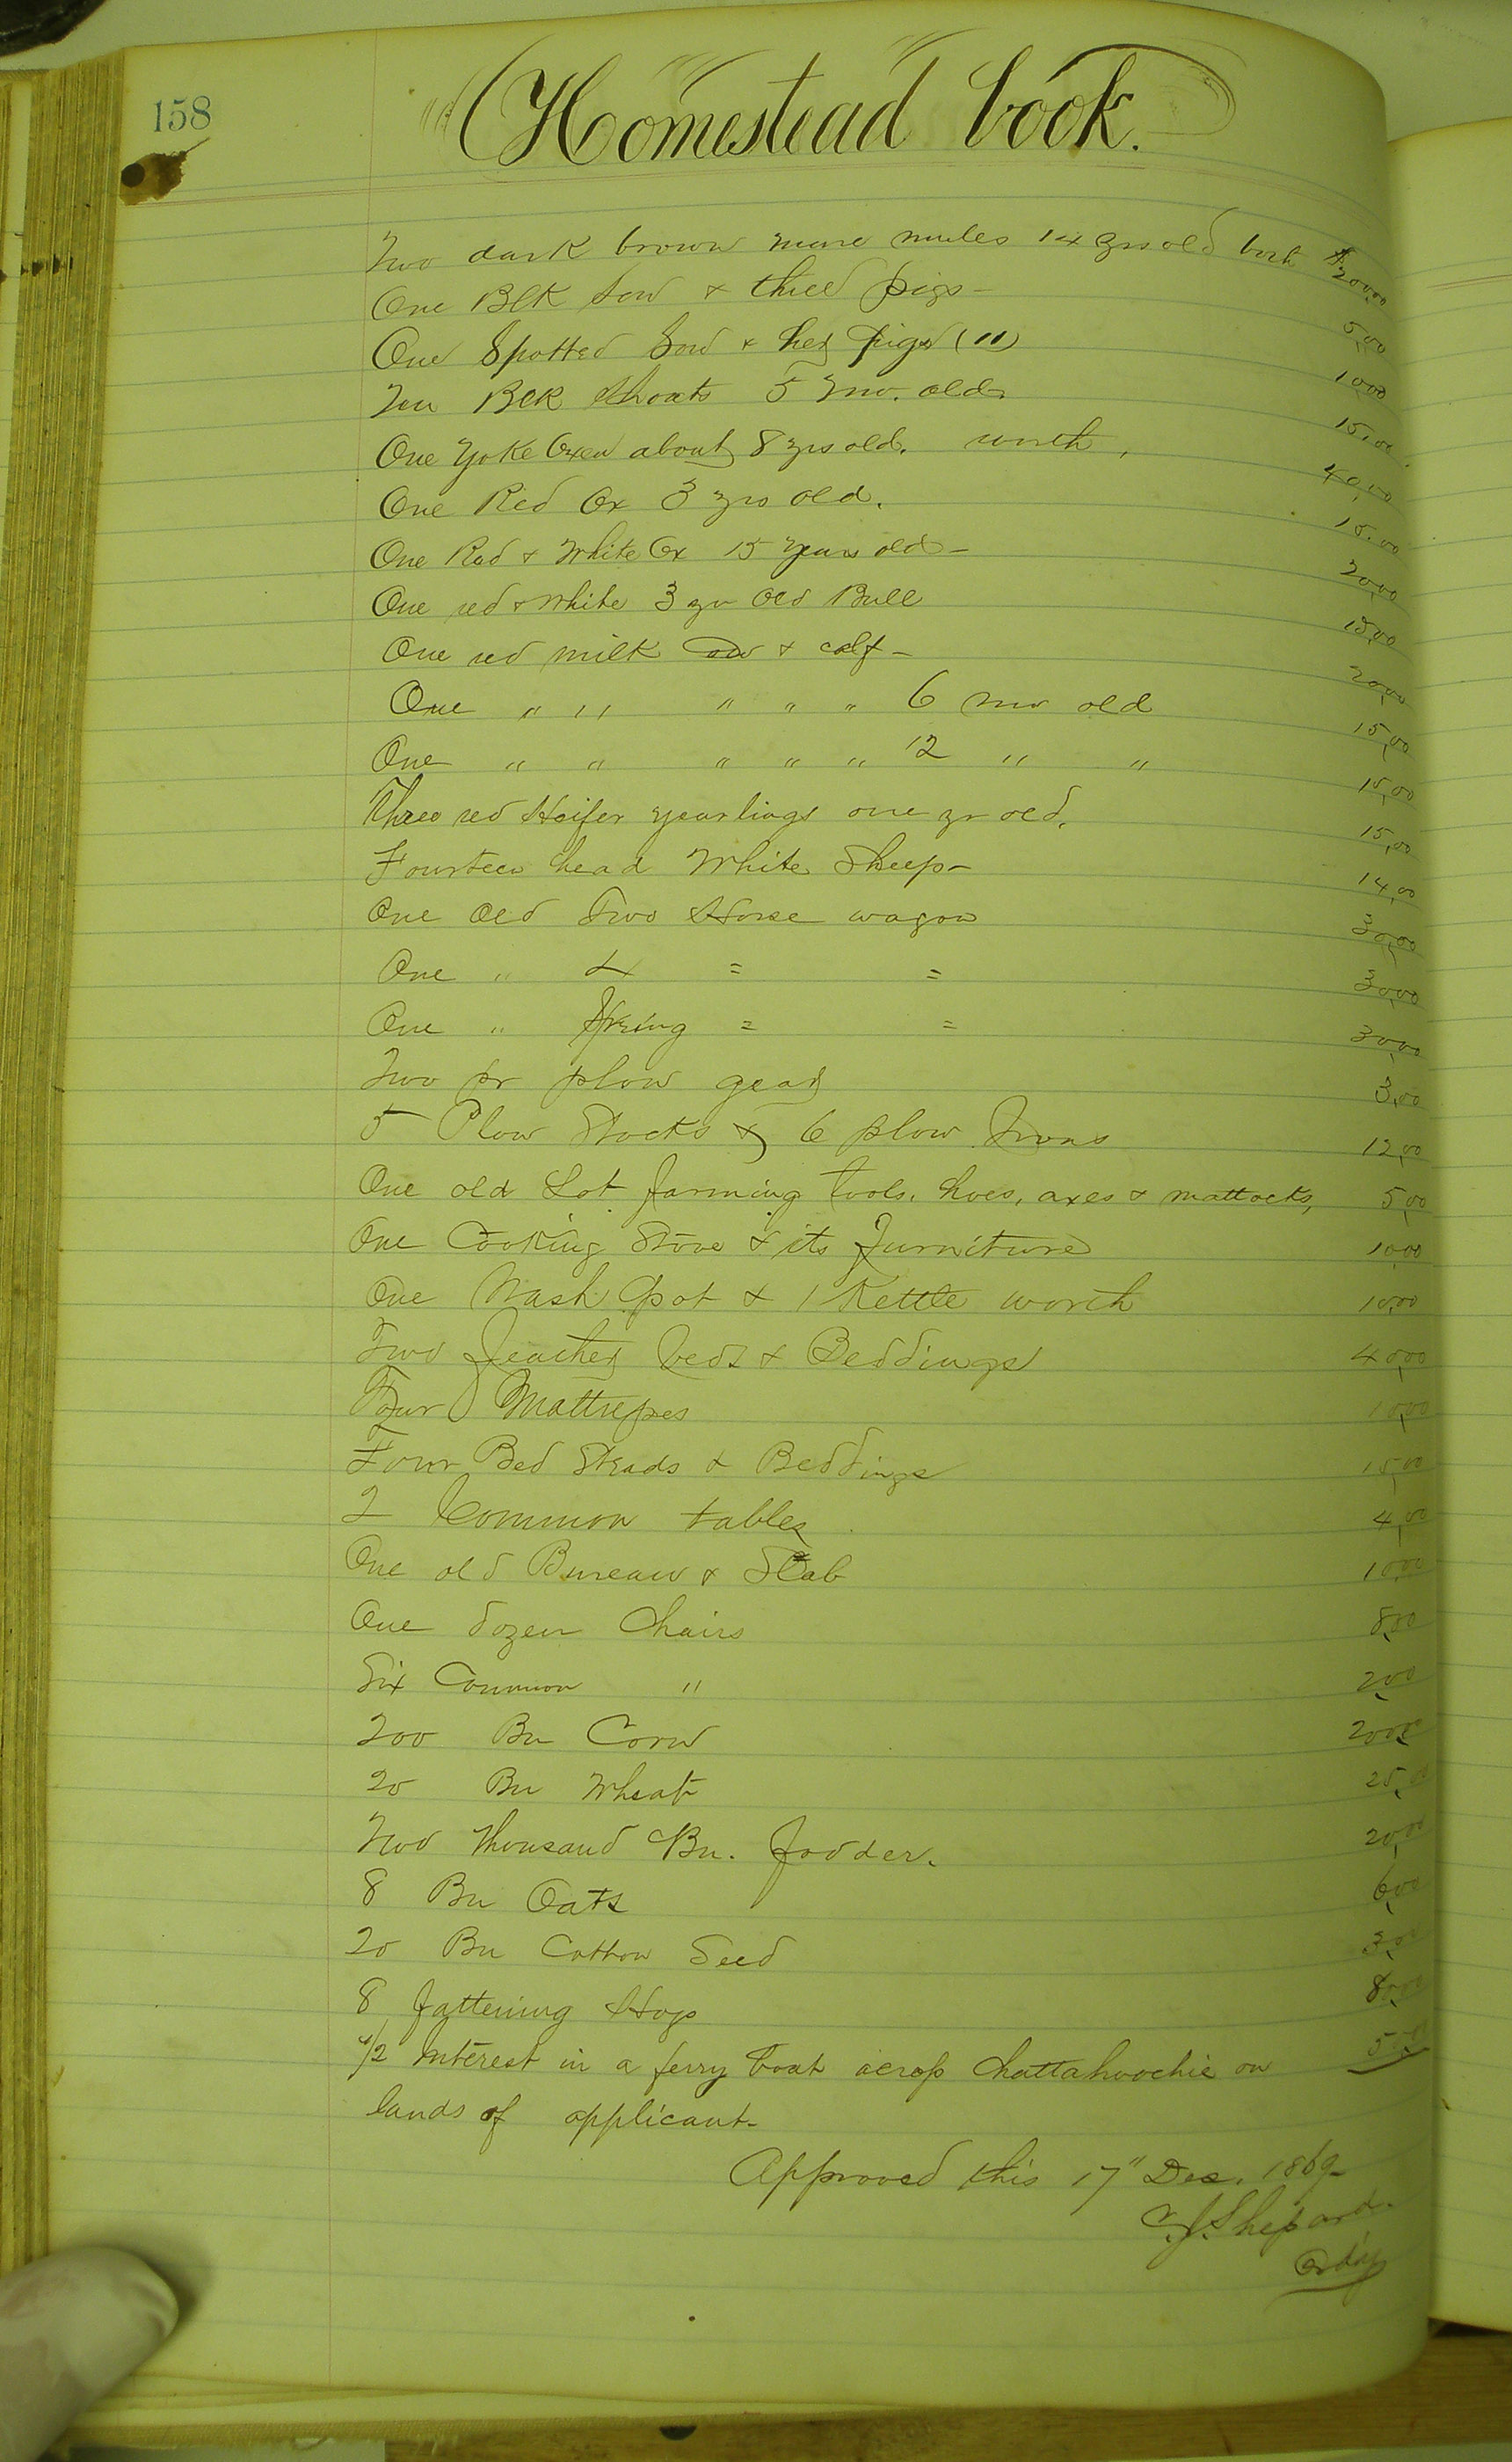 158
Homestead book.
Two dark brown mare mules 14 yrs old both $200,00
One Blk Sow & three pigs - 5,00
One Spotted Sow & her pigs (11) 10,00
Ten Blk Shoats 5 mo. old. 15,00
One Yoke Oxen about 8 yrs old. worth, 40,00
One Red Ox 3 yrs old. 15,00
One Red & White Ox 15 years old - 20,00
One red & white 3 yr old Bull 15,00
One red milk cow & calf - 20,00
One " " " " " 6 mo old 15,00
One " " " " " 12 " " 15,00
Three red Heifer yearlings one yr old. 15,00
Fourteen head White Sheep - 14,00
One Old Two Horse wagon 30,00
One " 4 = = 30,00
One " Spring = = 30,00
Two pr plow gear 3,00
5 Plow Stocks & 6 plow Irons 12,00
One old Lot farming tools. hoes, axes & mattocks, 5,00
One Cooking Stove & its Furniture 10,00
One Wash pot & 1 Kettle worth 10,00
Two feather beds & Beddings 40,00
Four Mattresses 10,00
Four Bed Steads & Beddings 15,00
2 Common tables 4,00
One old Bureau & Slab 10,00
One dozen Chairs 8,00
Six Common " 2,00
200 Bu Corn
20 Bu Wheat 25,
Two thousand Bu. Fodder. 20,00
8 Bu Oats 6,00
20 Bu Cotton Seed 3,00
8 fattening Hogs
1/2 Interest in a ferry boat across Chattahoochie on
lands of applicant.
Approved this 17" Dec. 1869
C.J. Shepard.
Ordy